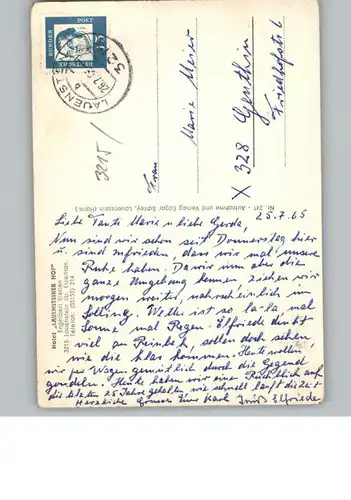 DEUTSCHE
BUNDES
POST
15
32
LAUENST
3215/
Frau
Marie Meier
X 328 Genthin
Friedhofstr 6
Nr. 241 - Aufnahme und Verlag Edgar Schley, Lauenstein (Hann.)
Hotel „LAUENSTEINER HOF"
3215 Lauenstein üb. Elze/Han.
Telefon: (05153) 214
25.7.65
Liebe Tante Marie u liebe Gerda,
Nun sind wir schon seit Donnerstag hier
u. sind zufrieden, dass wir mal unsere
Ruhe haben. Da wir nun aber die
ganze Umgebung kennen ziehen wir
morgen weiter, wahrscheinlich im
Solling. Wetter ist so la-la, mal
Sonne mal Regen. Elfriede denkt
viel an Reinbek, sollen doch sehen
wie die klar kommen. Heute wollen
wir per Wagen gemütlich durch die Gegend
gondeln. Heute haben wir eine Rückblick auf
die letzten 25 Jahre gehalten, wie schnell läuft die Zeit
Herzliche Grüsse Euer Karl Gruß Elfriede